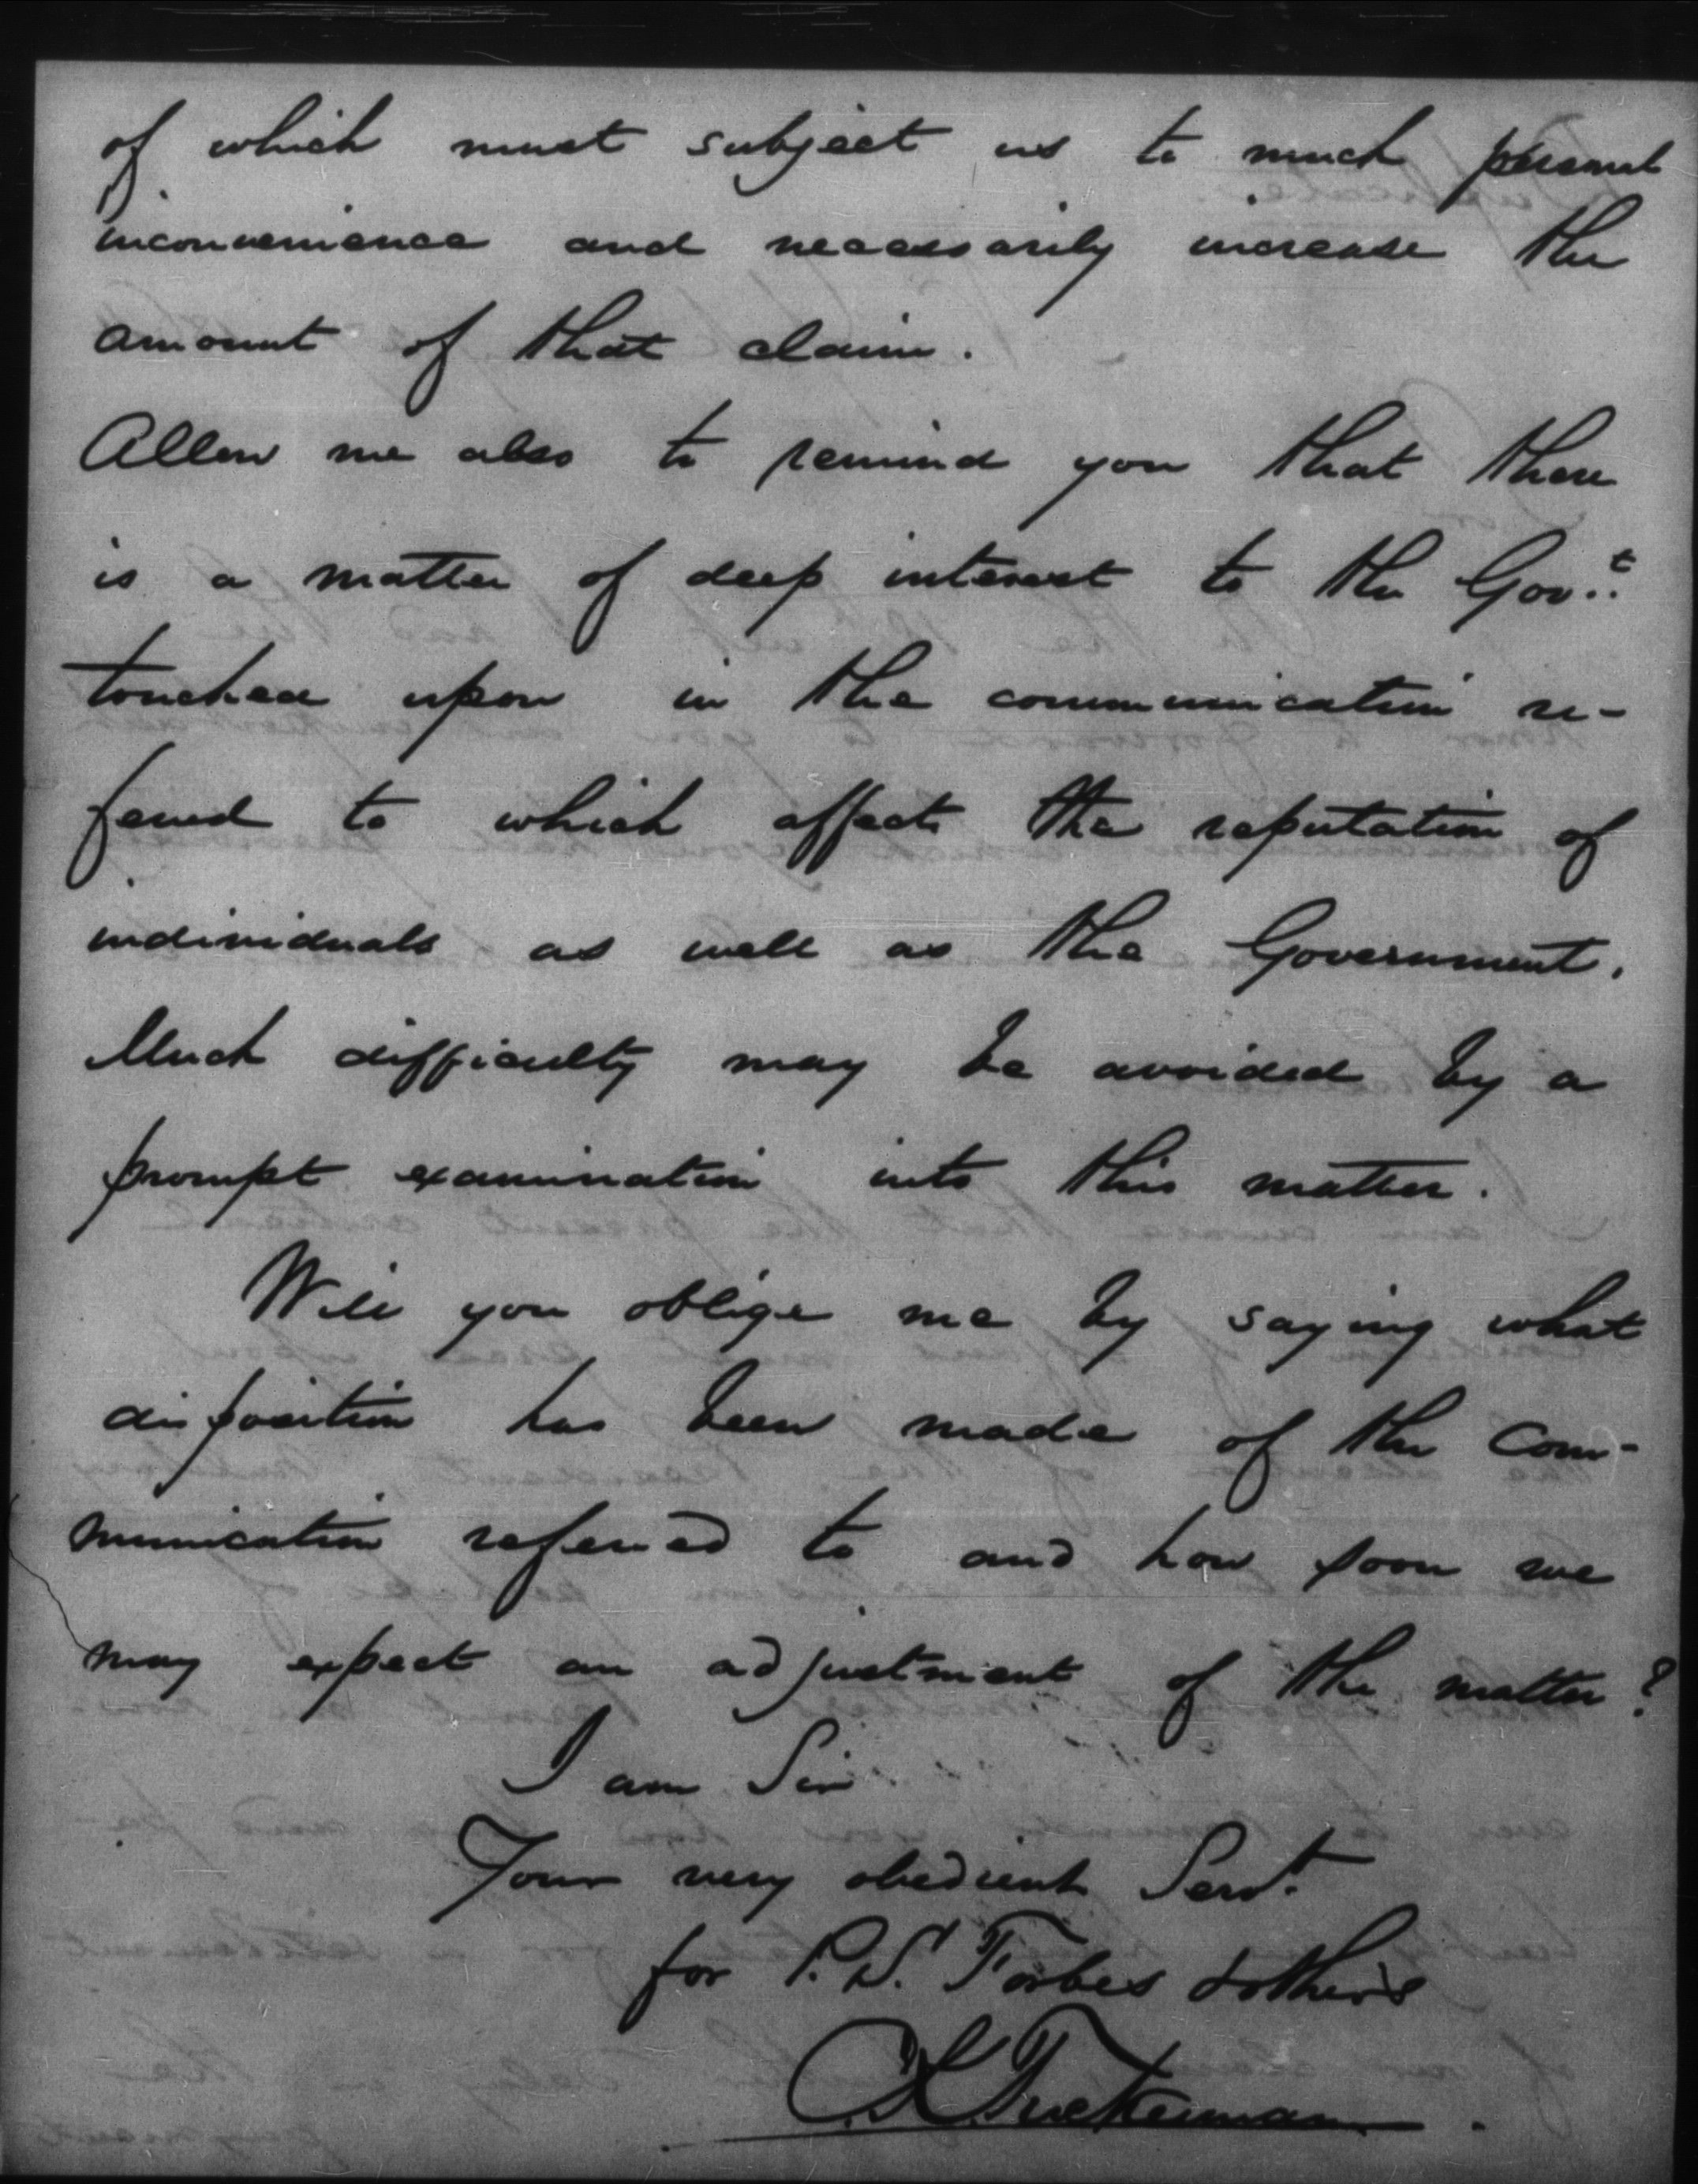 of which must subject us to much personal
inconvenience and necessarily increase the
amount of that claim.
Allow me also to remind you that there
is a matter of deep interest to the Gov.t
touched upon in the communication re-
ferred to which affects the reputation of
individuals as well as the Government.
Much difficulty may be avoided by a
prompt examination into this matter.
Will you oblige me by saying what
disposition has been made of the com-
munication referred to and how soon we
may expect an adjustment of the matter?
I am Sir
Your very obedient Servt.
for P. S. Forbes & others
Tuckerman